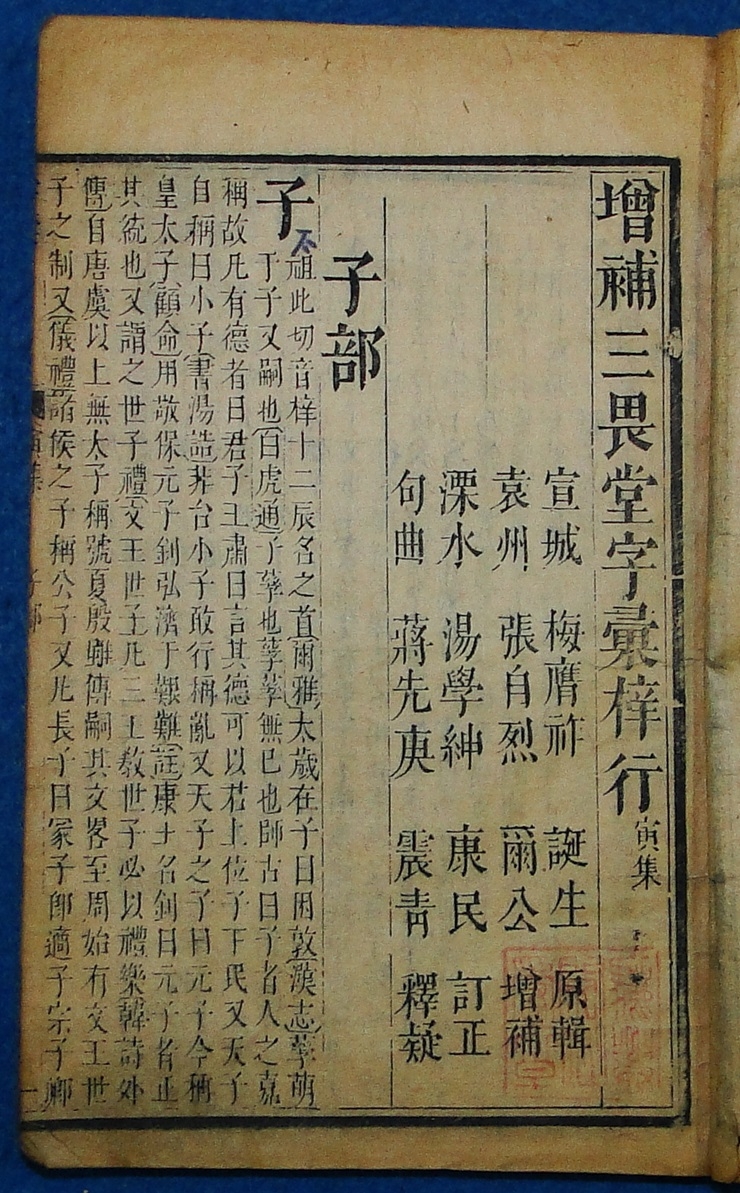 增補三畏堂字彙梓行 寅集
宣城 梅膺祚 誕生 原輯
袁州 張自烈 爾公 增補
溧水 湯學紳 康民 訂正
句曲 蔣先庚 震青 釋疑
子部
子 祖此切音梓十二辰名之首爾雅太歲在子曰困敦漢志孳萌
于子又嗣也白虎通子孳也孳孳無已也師古曰子者人之嘉
稱故凡有德者曰君子王肅曰言其德可以君上位子下民又天子
自稱曰小子書湯誥非台小子敢行稱亂又天子之子曰元子今稱
皇太子顧命用敬保元子釗弘濟于艱難註康王名釗曰元子者正
其統也又謂之世子禮文王世子凡三王教世子必以禮樂韓詩外
傳自唐虞以上無太子稱號夏殷雖傳嗣其文畧至周始有文王世
子之制又儀禮諸侯之子稱公子又凡長子曰冢子卽適子宗子鄉